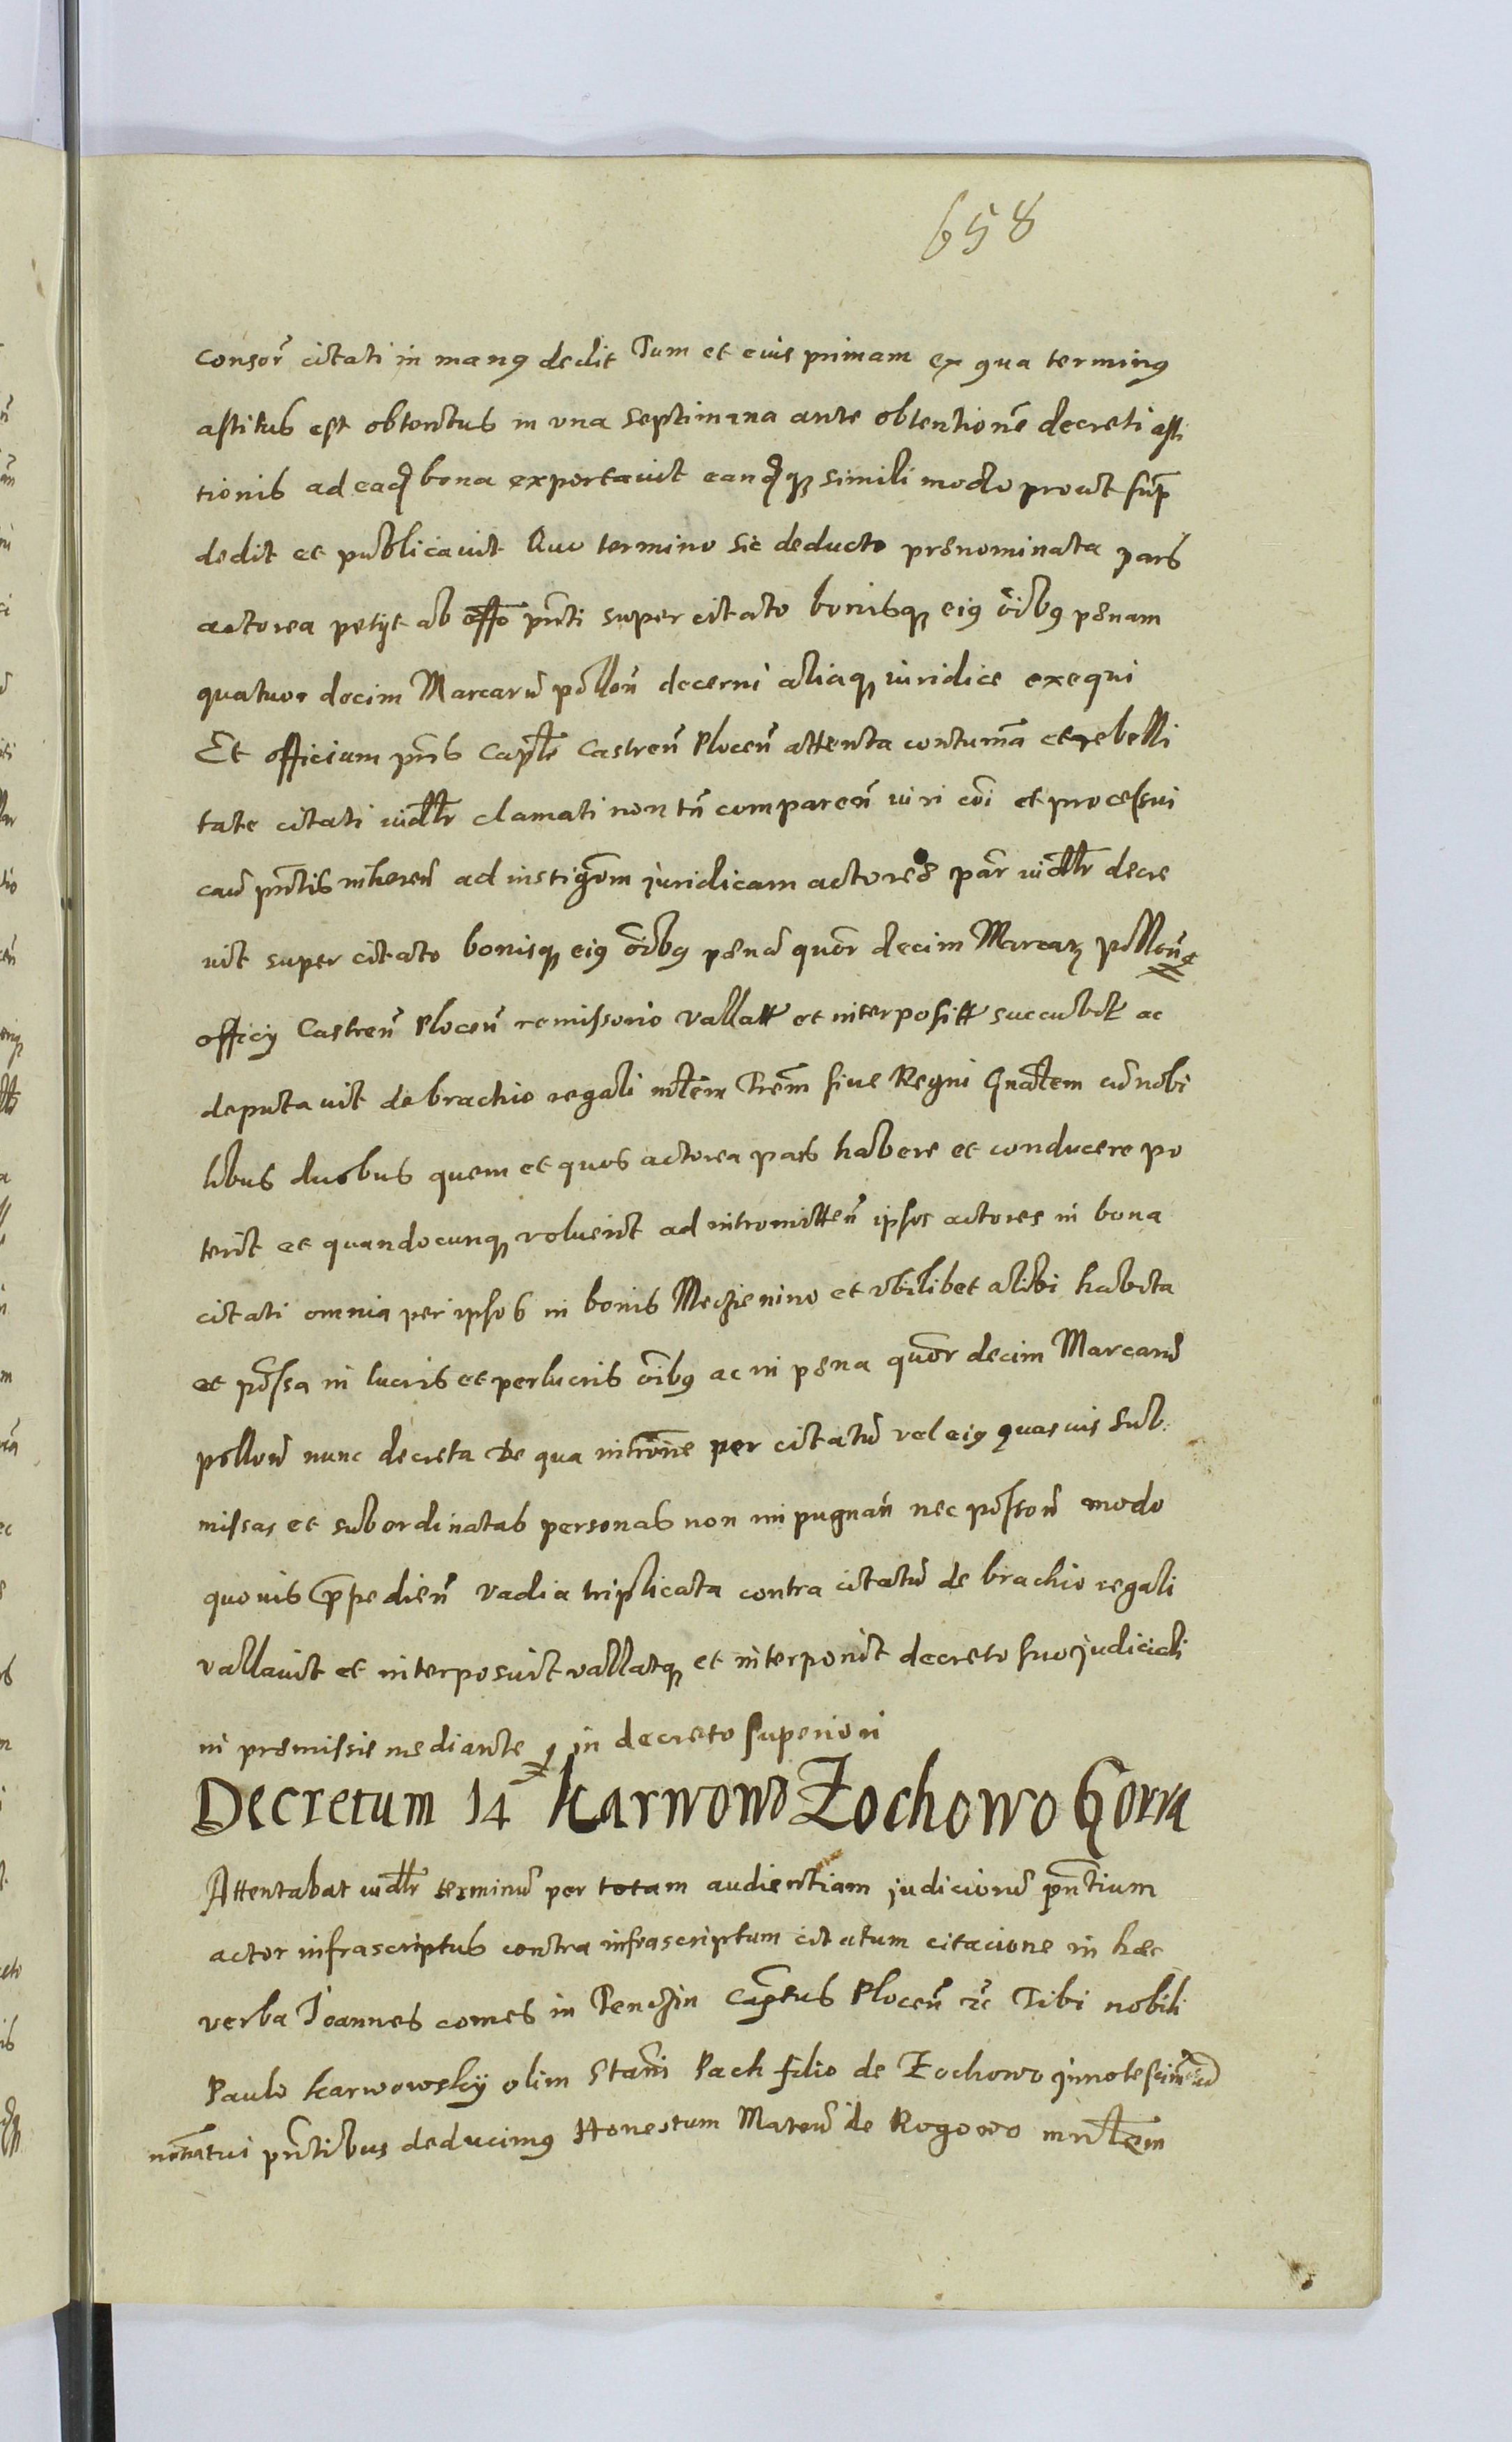 658
consor̃ citati in manꝯ dedit Tum et eius primam ex qua terminꝯ
astitus est obtentus in una septimana ante obtentionẽ decreti asti
tionis ad eadẽ bona exportavit eandẽqꝫ simili modo prout supͣ
dedit et publicavit Quo termino sic deducto prenominata pars
actorea petyt ab offõ pñti super citato bonisqꝫ eiꝯ õibꝯ penam
quatuor decim Marcarũ polloñ decerni aliaqꝫ iuridice exequi
Et officium pñs Capłe Castreñ Ploceñ attenta contumã et rebelli
tate citati uidłr clamati non tñ compareñ iuri cõi et processui
caũ pñtis inhereñ ad instigõm juridicam actoree par̃ uidłr decre
vit super citato bonisqꝫ eiꝯ õibꝯ penã quor̃ decim Marcaꝝ polloñ
officy Castreñ Ploceñ remissorio vallatt et interpositt succumbił ac
deputavit de brachio regali młem Trẽm sive Regni Gñałem cũ nobi
libus duobus quem et quos actorea pars habere et conducere po
terit et quandocunqꝫ voluerit ad intromitteñ ipsos actores in bona
citati omnia per ipsos in bonis Meczienino et ubilibet alibi habita
et põssa in lucris et perlucris õibꝯ ac in pena quor̃ decim Marcarũ
polloñ nunc decreta De qua intrõne per citatũ vel eiꝯ quasvis sub
missas et subordinatas personas non impugnañ nec possoñ modo
quovis prepedieñ vadia triplicata contra citatũ de brachio regali
vallavit et interposuit vallatqꝫ et interponit decreto suo judiciali
in premissis mediante in decreto superiori
Decretum 14 Karwowo Zochowo Gorra
Attentabat uidłr terminũ per totam audientiam judiciorũ pñtium
actor infrascriptus contra infrascriptum citatum citacione in hec
verba Joannes comes in Tenczin Capteus Ploceñ ꝛc Tibi nobili
Paulo Karwowsky olim Stani Pach filio de Zochowo
pñtibus deducimꝯ Honestum Mateũ de Rogowo młem